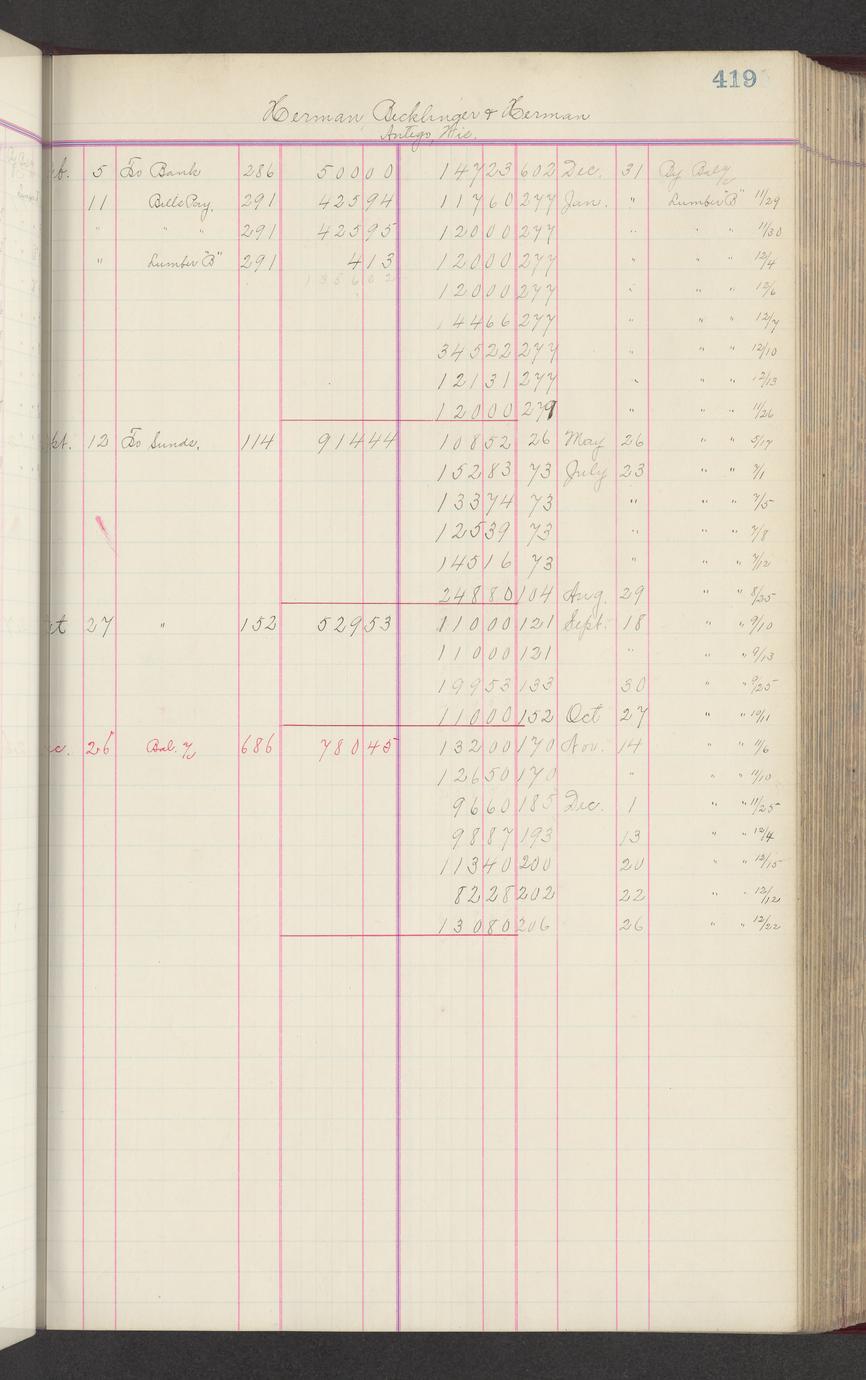 419
Herman Becklinger & Herman
Antego, Wis.
b. 5 To Bank 286 500 00 147 23 602 Dec. 31 By Bal %
11 Bills Pay. 291 425 94 117 60 277 Jan. " Lumber "B" 11/29
" " " 291 425 95 120 00 277 " " " 11/30
" Lumber "B" 291 4 13 120 00 277 " " " 12/4
120 00 277 " " " 12/6
44 66 277 " " " 12/7
345 22 277 " " " 12/10
121 31 277 " " " 12/13
120 00 279 " " " 11/26
pt. 12 To Sunds. 114 914 44 108 52 26 May 26 " " 5/17
152 83 73 July 23 " " 7/1
133 74 73 " " " 7/5
125 39 73 " " " 7/8
145 16 73 " " " 7/12
248 80 104 Aug. 29 " " 8/25
ct 27 " 152 529 53 110 00 121 Sept. 18 " " 9/10
110 00 121 " " " 9/13
199 53 133 30 " " 9/25
110 00 152 Oct 27 " " 10/11
c. 26 Bal. % 686 780 45 132 00 170 Nov. 14 " " 11/6
126 50 170 " " " 11/10
96 60 185 Dec. 1 " " 11/25
98 87 193 13 " " 12/4
113 40 200 20 " " 12/15
82 28 202 22 " " 12/12
130 80 206 26 " " 12/22